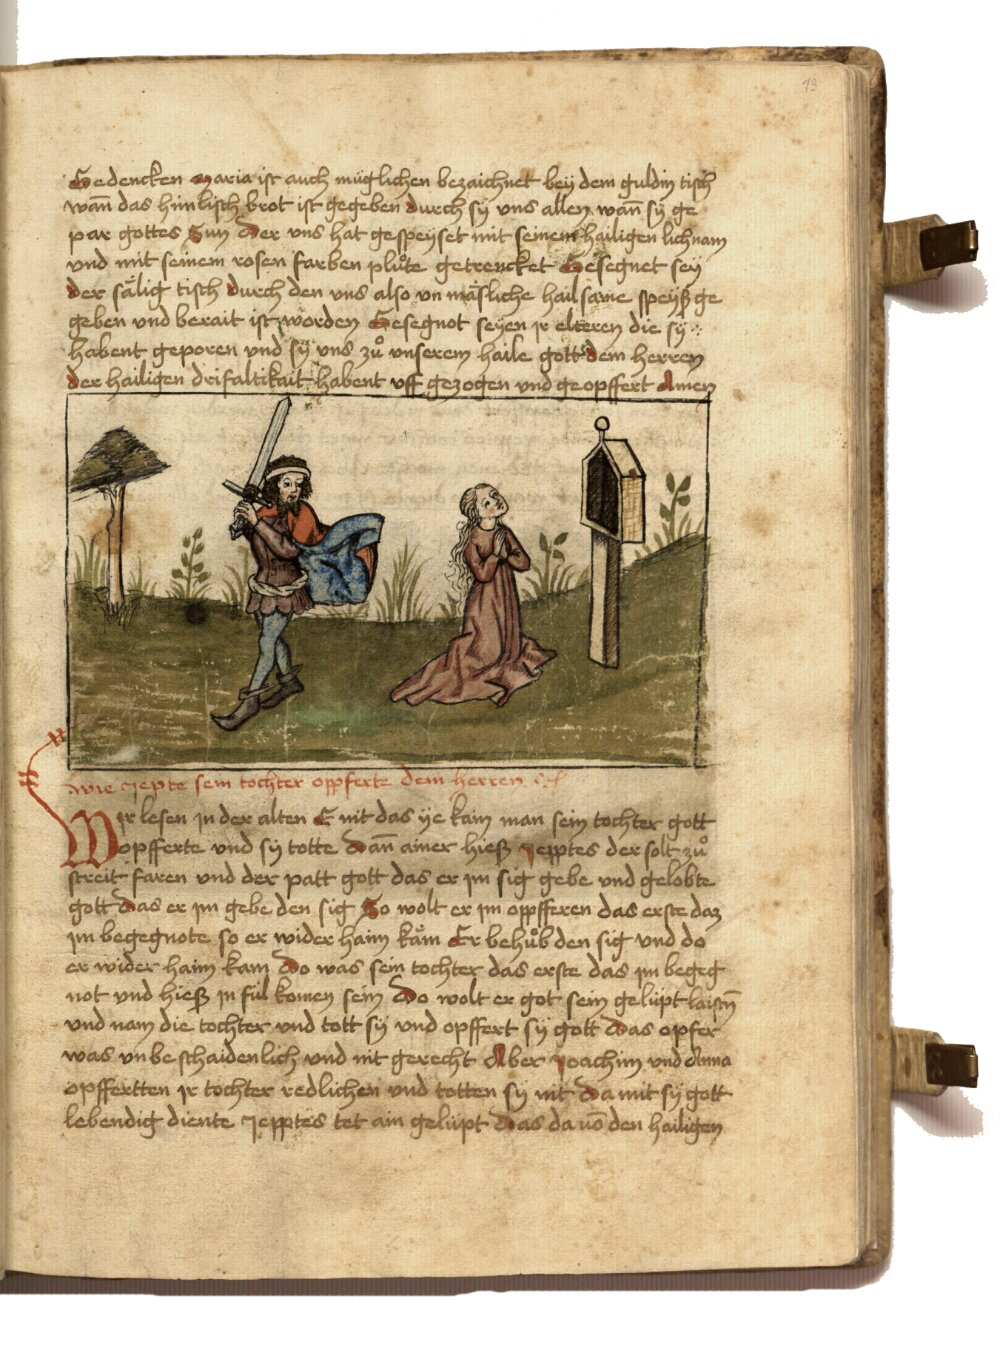 13
Gedencken Maria ist auch müglichen bezaichnet bey dem guldin tisch
wan̄ das himlisch brot ist gegeben durch sy vns allen wan̄ sy ge
par gottes Sun Der vns hat gespeyset mit seinem hailigen lichnam
vnd mit seinem rosen farben plůte getrencket Gesegnet sey
der sälig tisch durch den vns also vn mäsliche hailsame speyß ge
geben vnd berait ist worden Gesegnot seyen jr elteren die sy
habent geporen vnd sy vns zů vnserem haile gott dem herren
der hailigen drifaltikait habent vff gezogen vnd geopffert Amen
wie Jepte sein tochter opfferte dem herren
Wir lesen jn der alten E nit das ye kain man sein tochter gott
opfferte vnd sy totte Dan̄ ainer hieß Jepptes der solt zů
streit faren vnd der patt gott das er jm sig gebe vnd gelobte
gott Das er jm gebe den sig So wolt er jm oppfferen das erste daz
jm begegnote so er wider haim käm Er behůb den sig vnd do
er wider haim kam Do was sein tochter das erste das jm begeg
not vnd hieß jn fül komen sein Do wolt er got sein gelüpt laistn̄
vnd nam die tochter vnd tott sy vnd opffert sy gott Das opfer
was vnbeschaidenlich vnd nit gerecht Aber Joachim vnd Anna
opffertten jr tochter redlichen vnd totten sy nit Da mit sy gott
lebendig diente Jepptes tet ain gelüpt Das da vō den hailigen